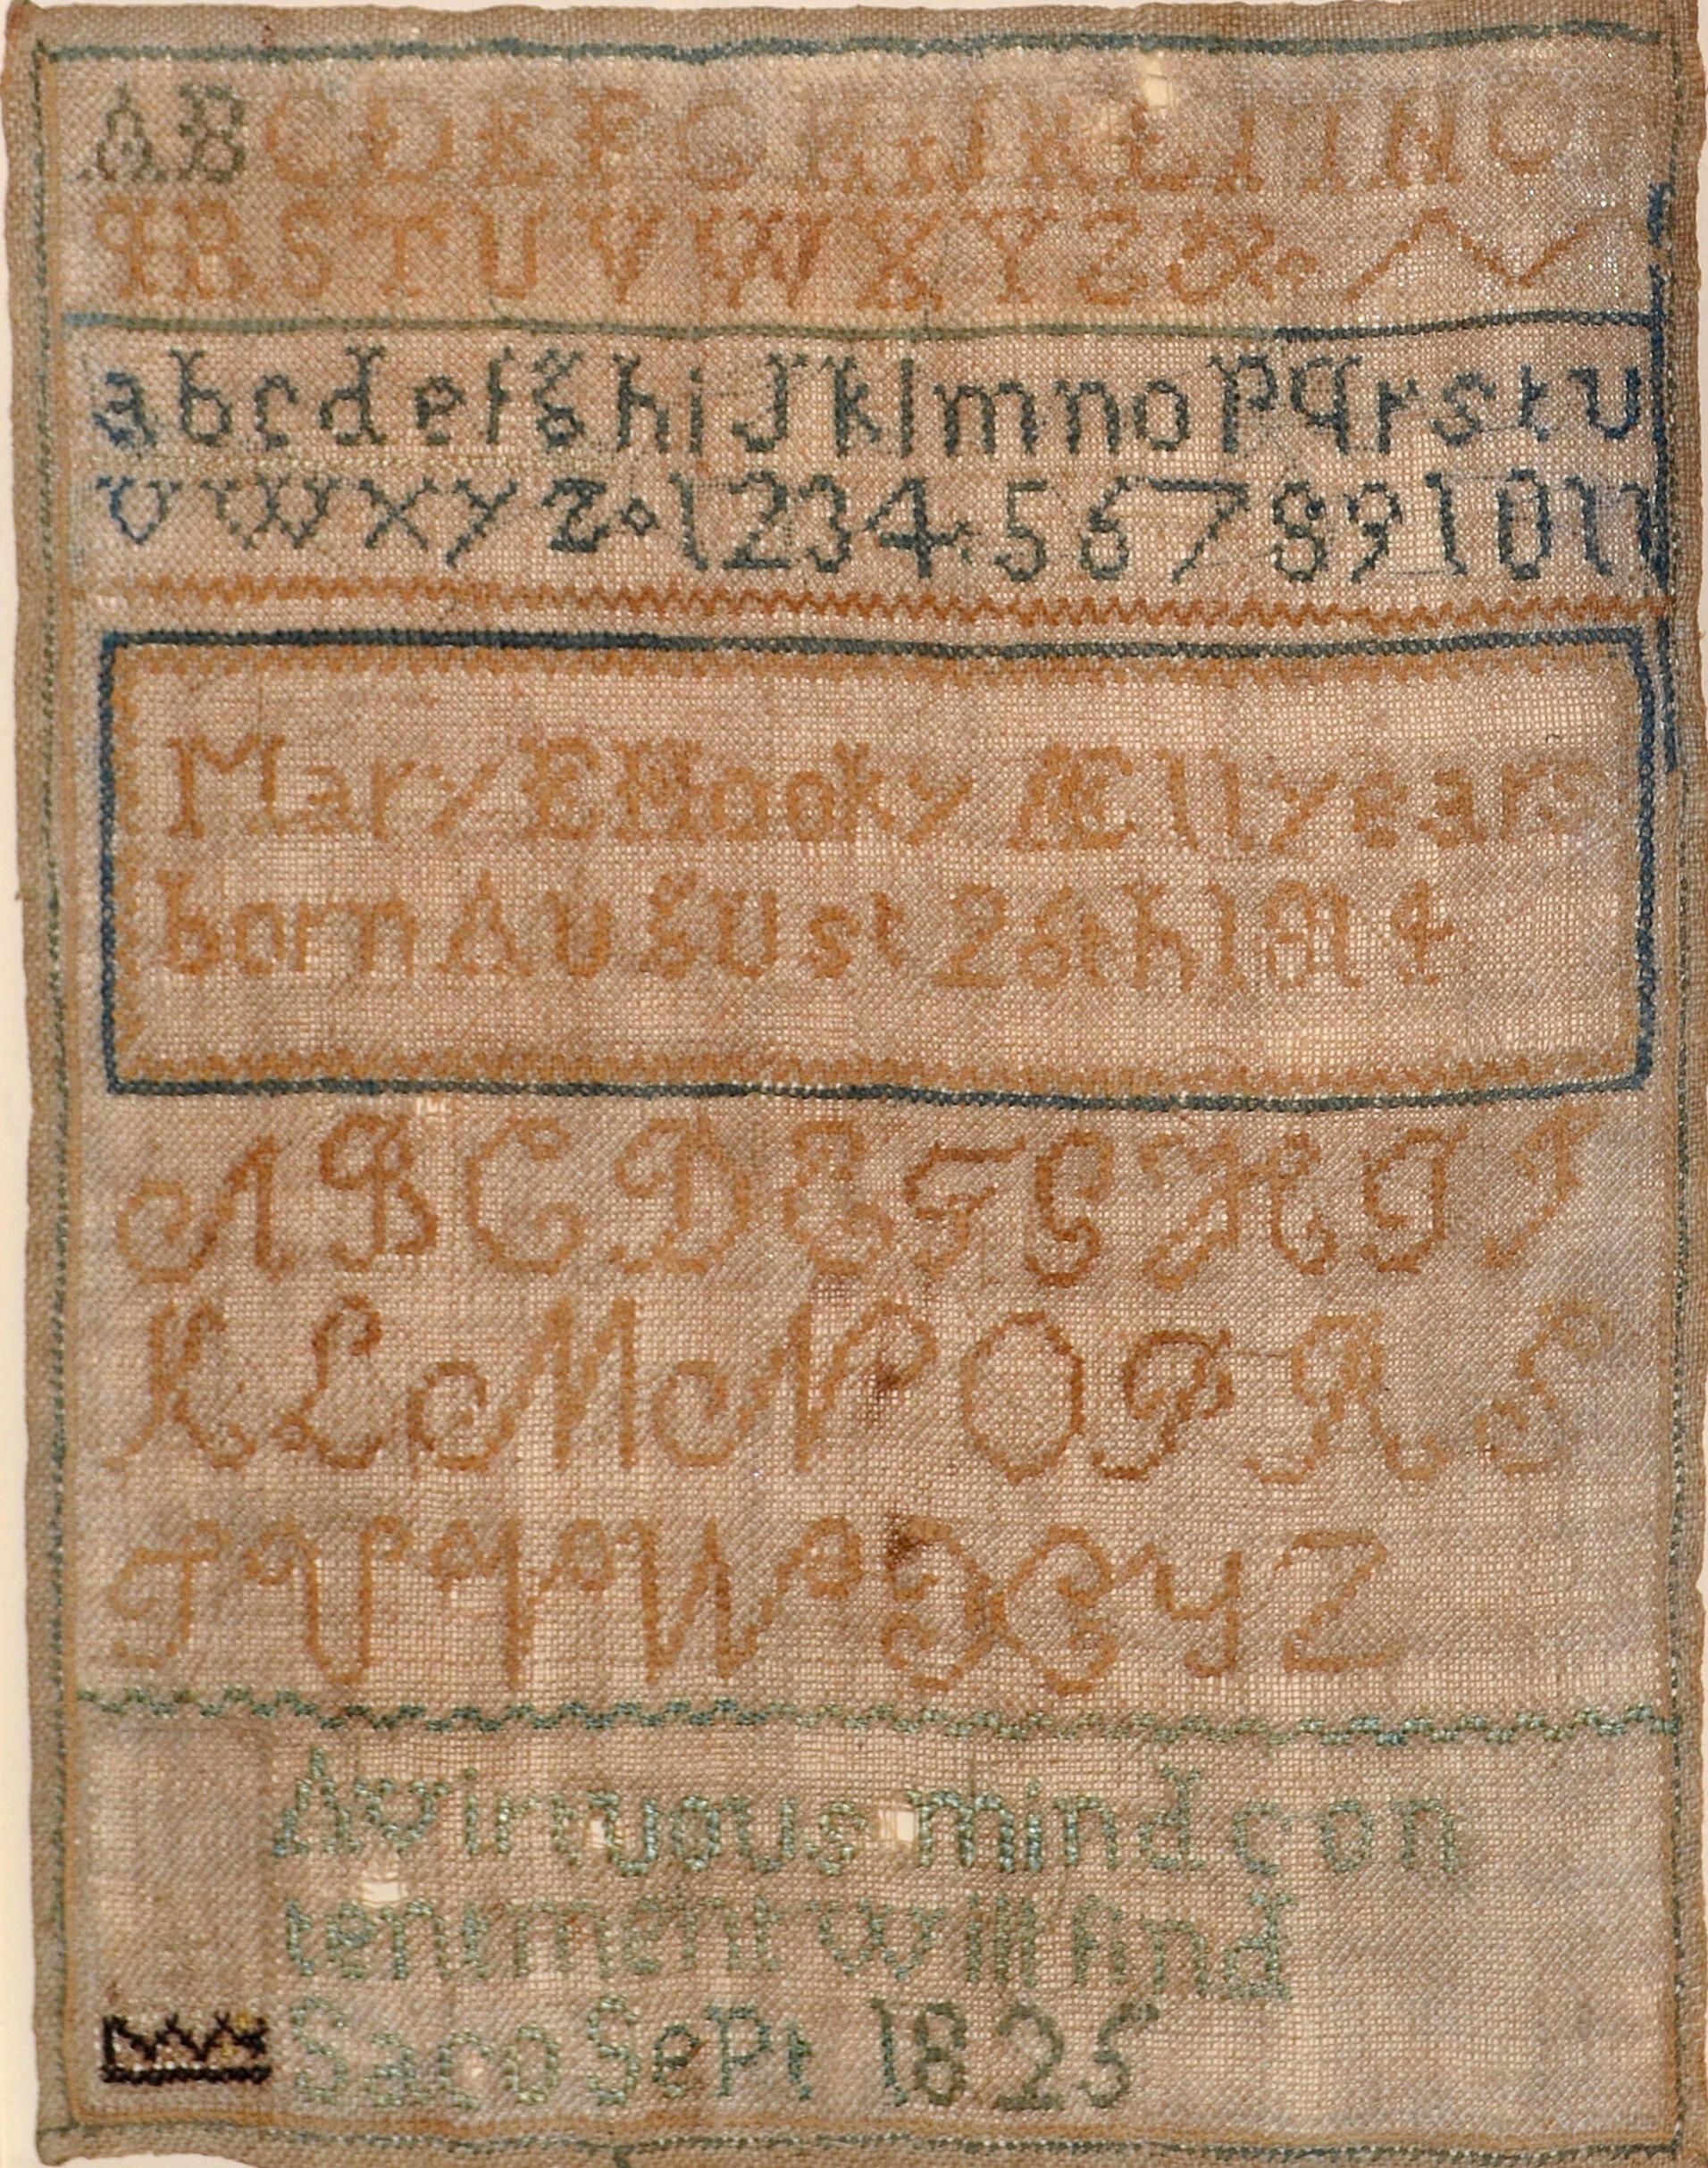 A B C D E F G H I J K L M N O
P Q R S T U V W X Y Z &
a b c d e f g h i J k l m n o p q r s t u
v w x y z 1 2 3 4 5 6 7 8 9 10 11
Mary E Hooky Æ 11 years
born August 26th 1814
A B C D E F G H I J
K L M N O P R S
T U V W X Y Z
A virtuous mind con
tentment will find
Saco Sept 1825